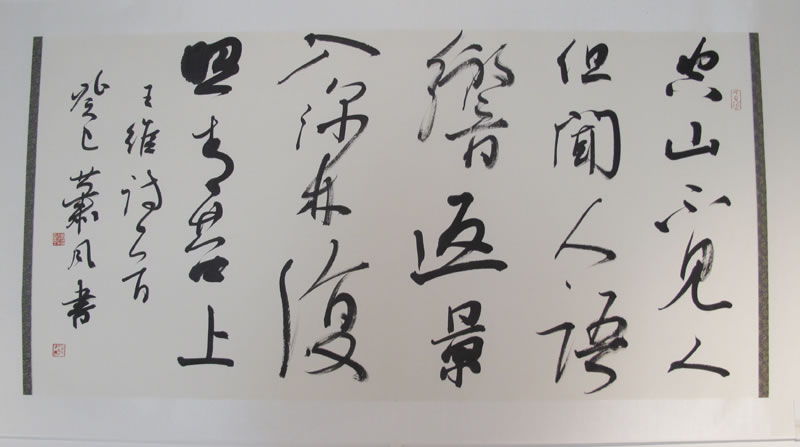 空山不见人
但闻人语
響返景
入深林復
照青苔上
王維詩一首
癸巳蕭风書